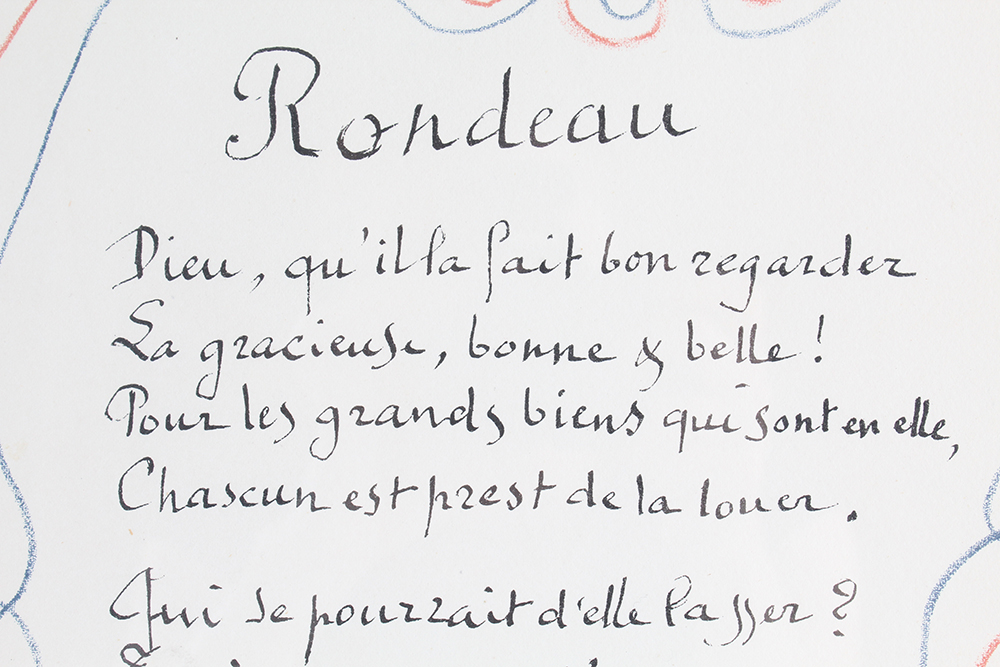 Rondeau
Dieu, qu'il la fait bon regarder
La gracieuse, bonne & belle !
Pour les grands biens qui sont en elle,
Chascun est prest de la louer.
Qui se pourrait d'elle lasser ?